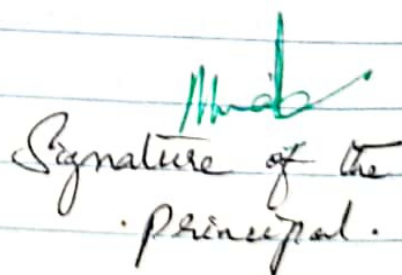 Signature of the
principal.